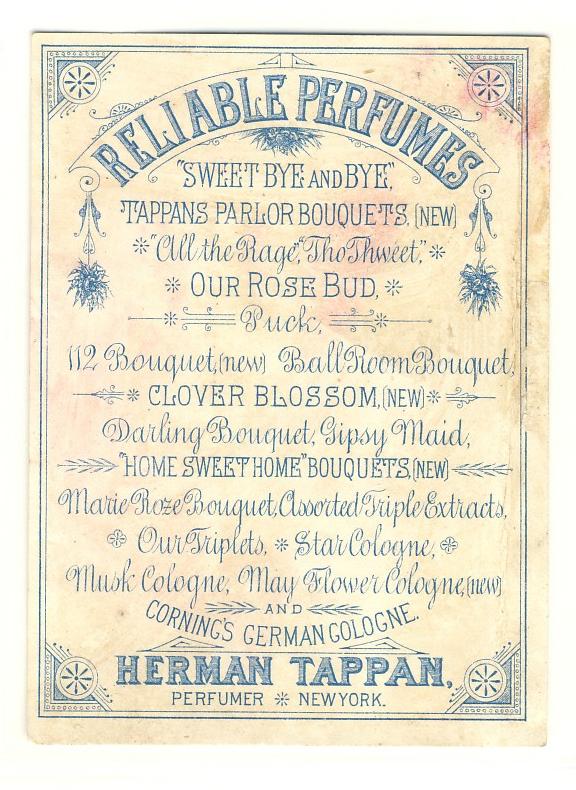 RELIABLE PERFUMES
"SWEET BYE AND BYE",
TAPPANS PARLOR BOUQUETS, (NEW)
"All the Rage", "Tho Thweet",
OUR ROSE BUD,
Puck,
112 Bouquet, (new) Ball Room Bouquet,
CLOVER BLOSSOM, (NEW)
Darling Bouquet, Gipsy Maid,
"HOME SWEET HOME" BOUQUETS, (NEW)
Marie Roze Bouquet, Assorted Triple Extracts,
Our Triplets, Star Cologne,
Musk Cologne, May Flower Cologne, (new)
AND
CORNING'S GERMAN COLOGNE.
HERMAN TAPPAN,
PERFUMER NEW YORK.